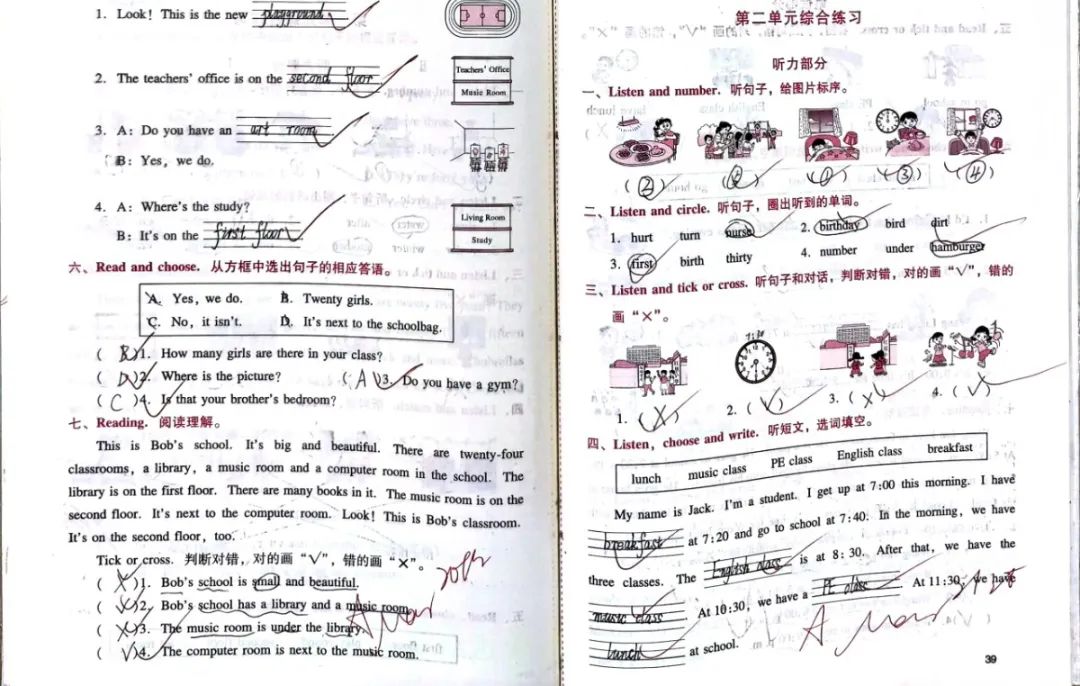 1. Look! This is the new playground
2. The teachers' office is on the second floor
Teachers' Office
Music Room
3. A: Do you have an art room
B: Yes, we do.
4. A: Where's the study?
B: It's on the first floor
Living Room
Study
六、Read and choose. 从方框中选出句子的相应答语。
A. Yes, we do. B. Twenty girls.
C. No, it isn't. D. It's next to the schoolbag.
( B )1. How many girls are there in your class?
( D )2. Where is the picture? ( A )3. Do you have a gym?
( C )4. Is that your brother's bedroom?
七、Reading. 阅读理解。
This is Bob's school. It's big and beautiful. There are twenty-four
classrooms, a library, a music room and a computer room in the school. The
library is on the first floor. There are many books in it. The music room is on the
second floor. It's next to the computer room. Look! This is Bob's classroom.
It's on the second floor, too.
Tick or cross. 判断对错，对的画“√”，错的画“×”。
( × )1. Bob's school is small and beautiful.
( )2. Bob's school has a library and a music room.
( × )3. The music room is under the library.
( √ )4. The computer room is next to the music room.
第二单元综合练习
听力部分
一、Listen and number. 听句子，给图片标序。
( 2 ) ( ) ( 1 ) ( 3 ) ( 4 )
二、Listen and circle. 听句子，圈出听到的单词。
1. hurt turn nurse 2. birthday bird dirt
3. first birth thirty 4. number under hamburger
三、Listen and tick or cross. 听句子和对话，判断对错，对的画“√”，错的
画“×”。
7:30
1. ( × ) 2. ( √ ) 3. ( × ) 4. ( )
四、Listen, choose and write. 听短文，选词填空。
lunch music class PE class English class breakfast
My name is Jack. I'm a student. I get up at 7:00 this morning. I have
breakfast at 7:20 and go to school at 7:40. In the morning, we have
three classes. The English class is at 8:30. After that, we have the
music class At 10:30, we have a PE class. At 11:30, we have
lunch at school.
39